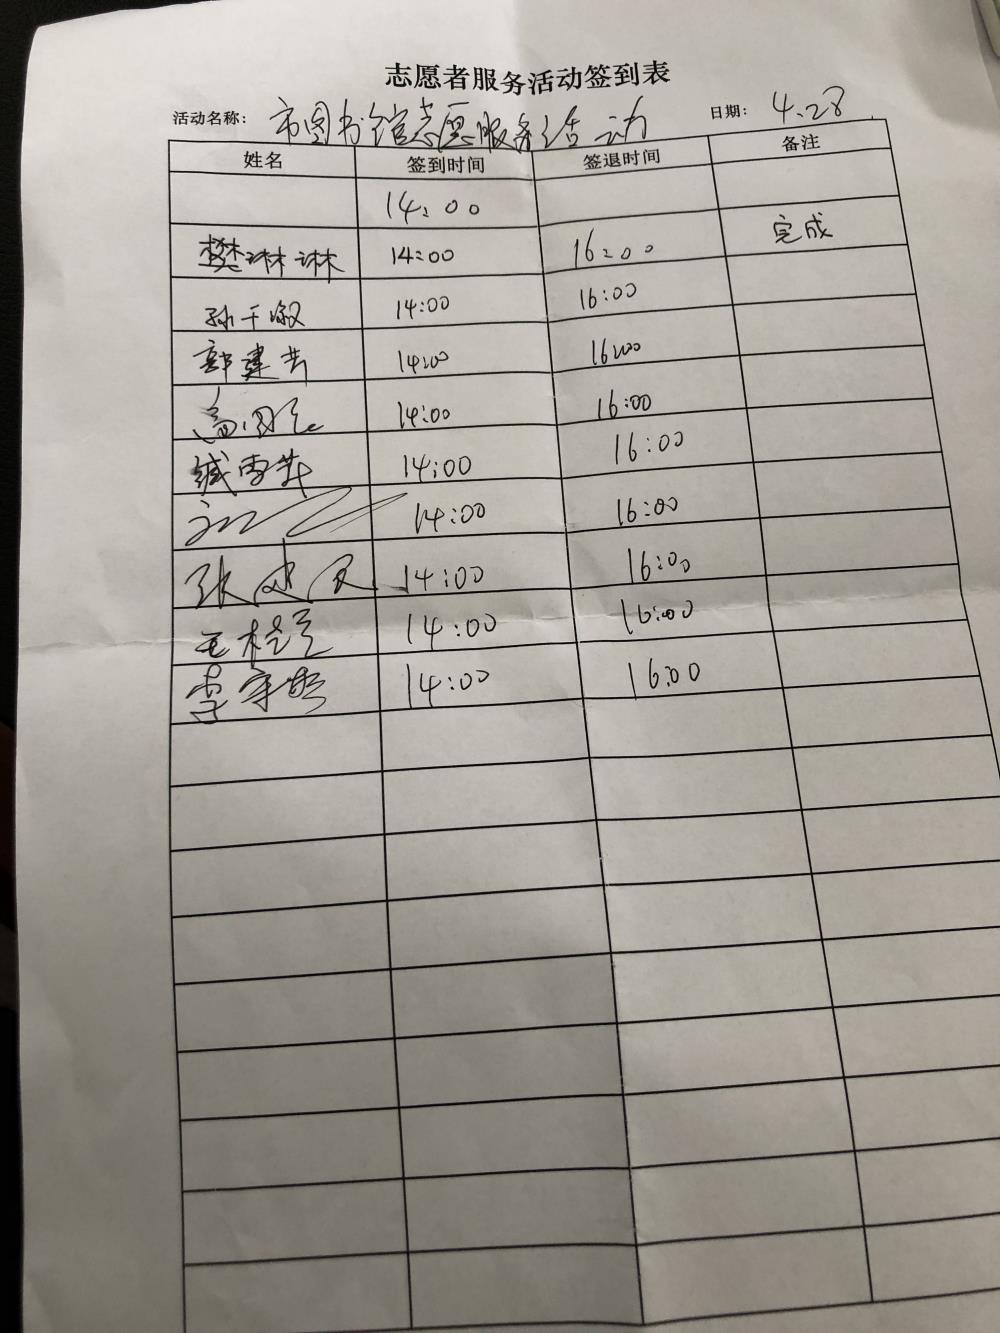 志愿者服务活动签到表
活动名称: 市图书馆志愿服务活动 日期: 4.28
姓名 签到时间 签退时间 备注
14:00
樊琳琳 14:00 16:00 完成
孙千淑 14:00 16:00
郭建芳 14:00 16:00
14:00 16:00
臧雪井 14:00 16:00
14:00 16:00
张建民 14:00 16:00
王桂兰 14:00 16:00
李 14:00 16:00